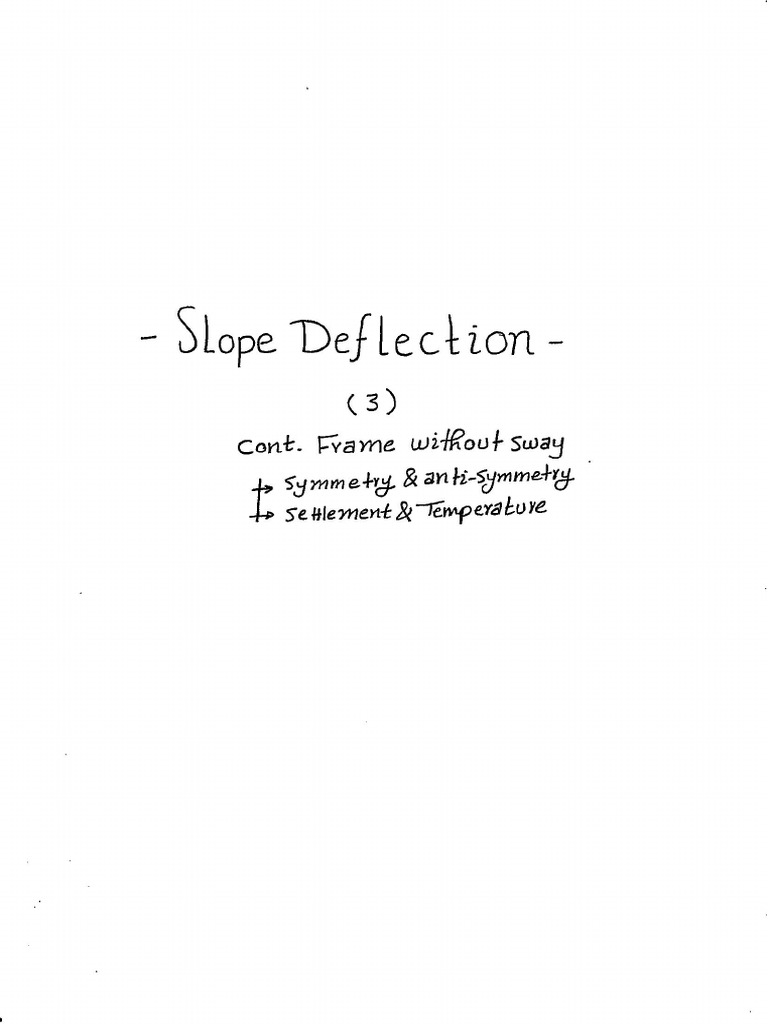 - Slope Deflection -
(3)
Cont. Frame without sway
→ Symmetry & anti-symmetry
→ settlement & Temperature